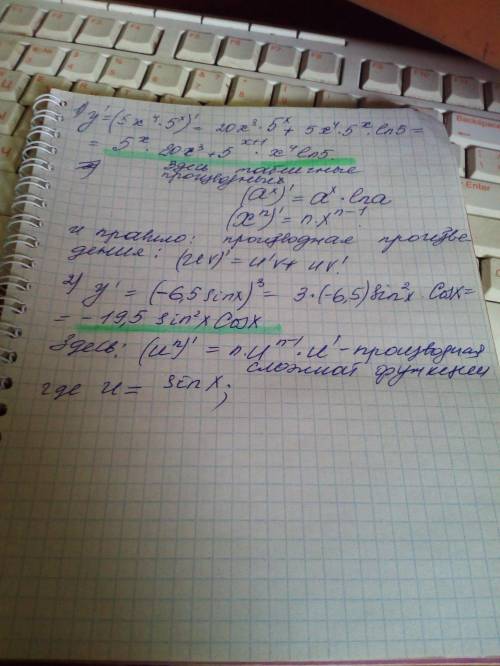 1) y' = (5x⁴·5ˣ)' = 20x³·5ˣ + 5x⁴·5ˣ·ln5 =
= 5ˣ·20x³ + 5ˣ⁺¹·x⁴ ln5.
Здесь табличные
производных
(aˣ)' = aˣ·lna
(xⁿ)' = n·xⁿ⁻¹
и правило: производная произве-
дения: (uv)' = u'v + uv'
2) y' = (-6,5 sinx)³ = 3·(-6,5) sin²x · Cosx =
= -19,5 sin²x Cosx
Здесь: (uⁿ)' = n·uⁿ⁻¹·u' - производная
сложной функции
где u = sin x;
Backspace